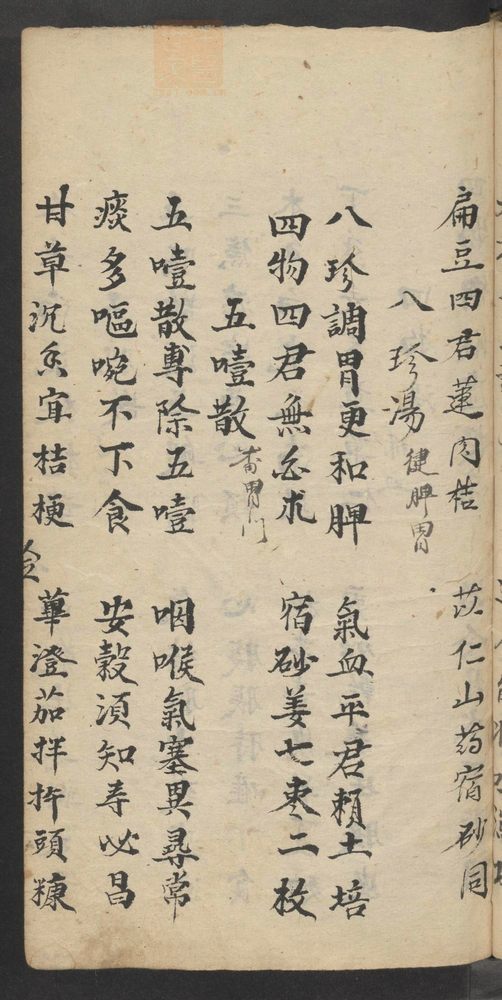 扁豆四君蓮肉桔 苡仁山药宿砂同
八珍湯 健脾胃
八珍調胃更和脾 氣血平君頼土培
四物四君無必求 宿砂姜七枣二枚
五噎散 胃门
五噎散專除五噎 咽喉氣塞異尋常
痰多嘔啘不下食 安穀湏知寿必昌
甘草沉香宜桔梗 蓽澄茄拌杵頭糠